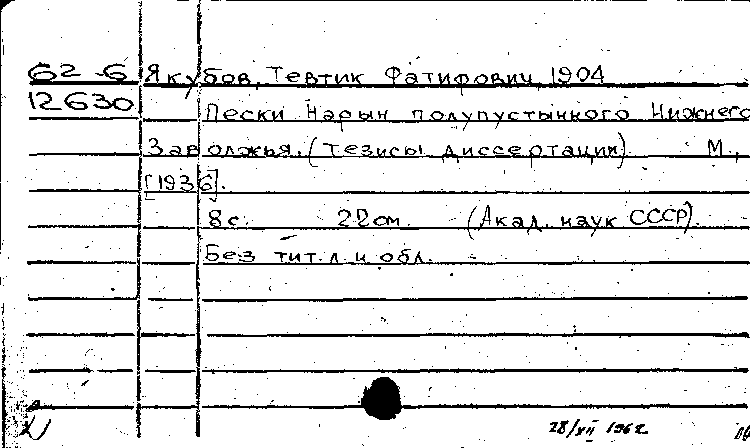 62-6 Якубов, Тевтик Фатифович, 1904
12630 Пески Нарын полупустынного Нижнего
Заволжья. (тезисы диссертации). М.,
[1936].
8 с. 22 см. (Акад. наук СССР).
Без тит. л. и обл.
28/XII 1962